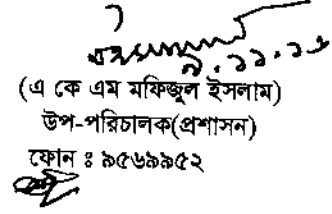 ৯.১১.১৬
(এ কে এম মফিজুল ইসলাম)
উপ-পরিচালক(প্রশাসন)
ফোন ঃ ৯৫৬৯৯৫২